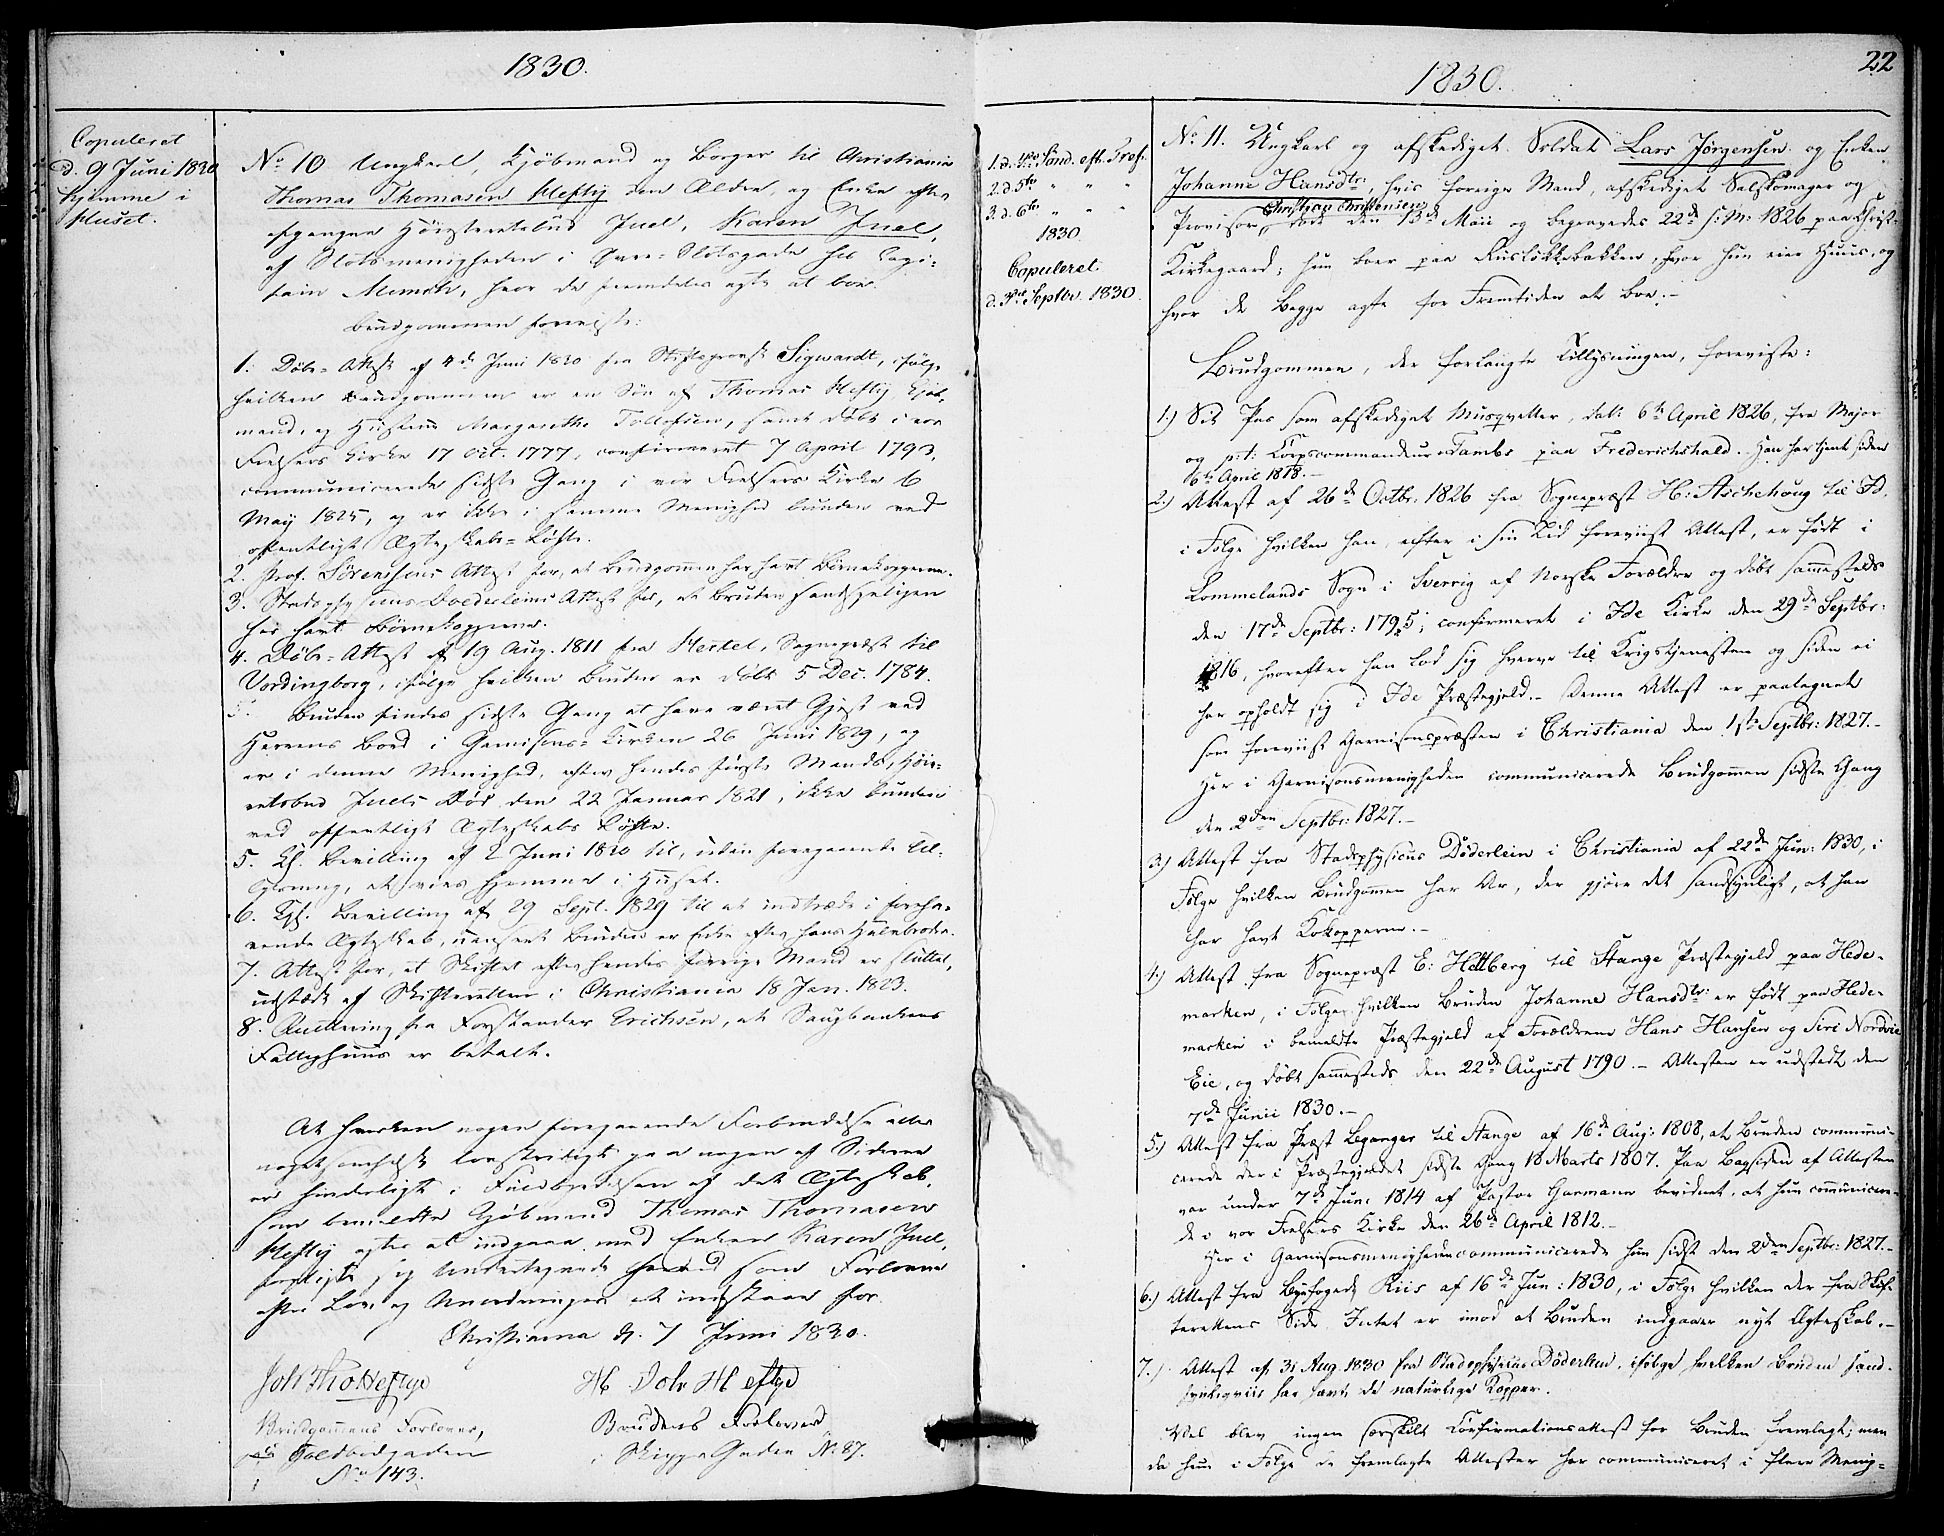 1830.
Copuleret
d. 9 Juni 1830
hjemme i
Huset.
No 10 Ungkarl, Kjöbmand og Borger til Christiania
Thomas Thomasen Heftij den Ældre, og Enke efter
afgangne Höiesteretsbud Juel, Karen Juel,
af Slotsmenigheden i Övre-Slotsgade hos Capi-
tain Munch, hvor de fremdeles agte at boe.
Brudgommen foreviste:
1. Döbe-Attest af 4de Juni 1830 fra Stiftsprovst Sigwardt, ifölge
hvilken Brudgommen er en Sön af Thomas Heftij, Kjöb-
mand, og Hustrue Margarethe Tollofsen, samt döbt i vor
Frelsers Kirke 17 Oct. 1777, confirmeret 7 April 1793,
communicerede sidste Gang i vor Frelsers Kirke 6
Maij 1825, og er ikke i samme Menighed bunden ved
offentligt Ægteskabs-Löfte.
2. Prof. Sörenssens Attest for, at Brudgommen har havt Börnekopperne.
3. Stadsphysicus Doederleins Attest for, at Bruden sandsynligen
har havt Börnekopperne.
4. Döbe-Attest af 19 Aug. 1811 fra Hertel, Sognepræst til
Vordingborg, ifölge hvilken Bruden er döbt 5 Dec. 1784.
5. Bruden findes sidste Gang at have været Gjest ved
Herrens Bord i Garnisons-Kirken 26 Juni 1829, og
er i denne Menighed, efter hendes förste Mands, Höie-
retsbud Juels Död den 22 Januar 1821, ikke bunden
ved offentligt Ægteskabs Löfte.
5. Kgl. Bevilling af 2 Juni 1830 til, uden foregaaende Til-
lysning, at vies hjemme i Huset.
6. Kgl. Bevilling af 29 Sept. 1829 til at indtræde i foreha-
vende Ægteskab, uanseet Bruden er Enke efter hans Halvbroder.
7. Attest for, at Skiftet efter hendes forrige Mand er sluttet,
udstædt af Skifteretten i Christiania 18 Jan. 1823.
8. Qvittering fra Forstander Erichsen, at Saugbankens
Fattighuus er betalt.
At hverken nogen foregaaende Forbindelse eller
nogetsomhelst lovstridigt paa nogen af Siderne
er hinderligt i Fuldbyrdelsen af det Ægteskab,
som bemeldte Kjöbmand Thomas Thomasen
Heftij agter at indgaae med Enken Karen Juel,
forpligte sig Undertegnede herved som Forlovere
efter Lov og Anordninger at indestaae for.
Christiania d. 7 Juni 1830.
Joh Tho Heftye
Brudgommens Forlover,
Toldbodgaden
No 143.
H. Joh Heftye
Brudens Forlover,
i SkippeGaden No. 87.
1830.
22
1. d. 4de Sönd. eft. Tref.
2. d. 5te " " "
3. d. 6te " " "
1830
Copuleret
d. 3die Septbr 1830.
No 11. Ungkarl og afskediget Soldat Lars Jörgensen og Enken
Johanne Hansdtr, hvis forrige Mand, afskediget Salskomager og
Christian Christensen
Provisor, döde den 13de Maii og begravedes 22de s: M: 1826 paa Christ-
Kirkegaard; hun boer paa Ruslökbakken, hvor hun eier Huus, og
hvor de begge agte for Fremtiden at boe.-
Brudgommen, der forlangte Tillysningen, foreviste:
1.) Sit Pas som afskediget Musqvetter, dat: 6te April 1826, fra Major
og p:t: Korpscommandeur Tambs paa Frederichshald. Han har tjent siden
6te April 1818.-
2.) Attest af 26de Octbr: 1826 fra Sognepræst H: Aschehoug til Id,
i Fölge hvilken han, efter i sin Tid foreviist Attest, er födt i
Lommelands Sogn i Sverrig af Norske Forældre og döbt sammesteds
den 17de Septbr: 1795; confirmeret i Ide Kirke den 29de Septbr:
1816, hvorefter han lod sig hverve til Krigstjenesten og siden ei
har opholdt sig i Ide Præstegjeld.- Denne Attest er paategnet
som foreviist Garnisonspræsten i Christiania den 1ste Septbr: 1827.-
Her i Garnisonsmenigheden communicerede Brudgommen sidste Gang
den 2den Septbr: 1827.-
3.) Attest fra Stadsphysicus Döderlein i Christiania af 22de Jun: 1830, i
Fölge hvilken Brudgommen har Ar, der gjöre det sandsynligt, at han
har havt Kokopperne.-
4.) Attest fra Sognepræst E: Hettberg til Stange Præstegjeld paa Hede-
marken, i Fölge hvilken Bruden Johanne Hansdtr: er födt paa Hede-
marken i bemeldte Præstegjeld af Forældrene Hans Hansen og Siri Nordvie
Eie, og döbt sammesteds den 22de August 1790.- Attesten er udstedt den
7de Junii 1830.-
5.) Attest fra Præst Leganger til Stange af 16de Aug: 1808, at Bruden communi-
cerede der i Præstegjeldet sidste Gang 18 Marts 1807. Paa Bagsiden af Attesten
var under 7de Juni 1814 af Pastor Garmann bevidnet, at hun communicere-
de i vor Frelsers Kirke den 26de April 1812.-
Her i Garnisonsmenigheden communicerede hun sidst den 2den Septbr: 1827.-
6.) Attest fra Byefoged Riis af 16de Jun: 1830, i Fölge hvilken der fra Skif-
terettens Side Intet er imod at Bruden indgaaer nyt Ægteskab.-
7.) Attest af 31 Aug. 1830 fra Stadsphysicus Döderlein, ifölge hvilken Bruden sand-
synligviis har havt de naturlige Kopper.
Vel blev ingen særskilt Confirmationsattest for Bruden fremlagt; men
da hun i Fölge de fremlagte Attester har communiceret i flere Menig-